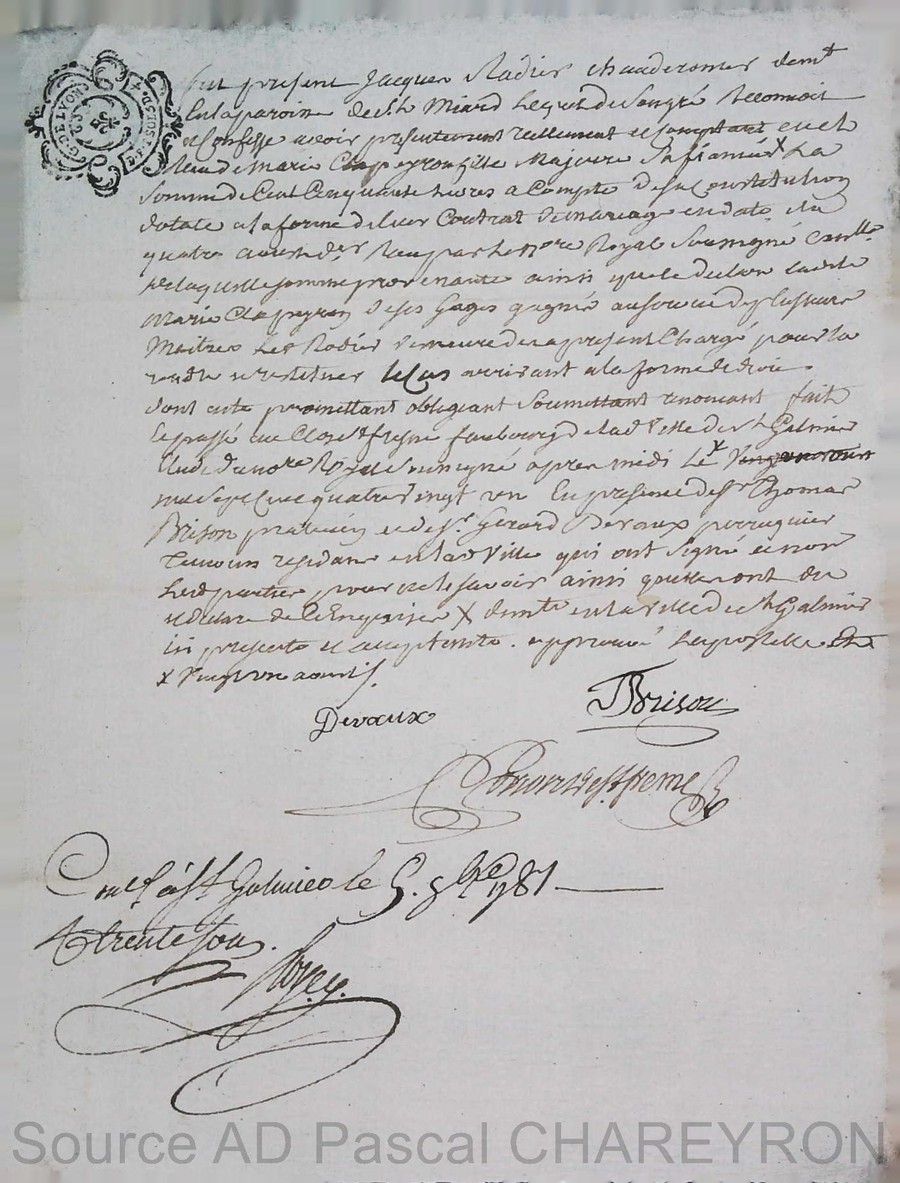 G. DE LYON
fut present Jacques Radier chauderonier demt
En la paroisse de St Miard Lequel de son gré Reconnoit
et Confesse avoir presentement reellement et comptant eu et
Receu de Marie Clapeyron fille Majeure sa fiancée X La
Somme de Cent Cinquante livres a Compte de sa Constitution
dotale a la forme de leur Contrat de mariage en datte du
quatre aoust der Reçu par Le nore Royal Soussigné
de laquelle somme provenante ainsi que le declare ladite
Marie Clapeyron de ses Gages gagné au service de plusieurs
Maitres Led Radier demeure des a present Chargé pour la
rendre et restituer le Cas arrivant a la forme de droit
dont acte promettant obligeant Soumettant renoncant fait
et passé au Clos defresne faubourg de lad ville de St Galmier
Etude du nore Royal Soussigné apres midi Le X
mil sept cent quatre vingt un En presence de Sr Thomas
Brison praticien et de Sr Gerard Devaux perruquier
Temoins residant en lad Ville qui ont Signé et non
Lesd parties pour ne le savoir ainsi quelles ont dit
et declaré de ce Enquises X demte en la ville de St Galmier
ici presente et acceptante. approuvé
X vingt un aoust
Devaux
JBrison
Conlé à St Galmier le 5. 7bre 1781
R trente sous.
Source AD Pascal CHAREYRON